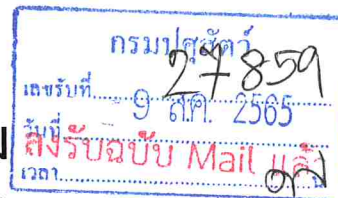 กรมปศุสัตว์
เลขรับที่ 27859
วันที่ - 9 ส.ค. 2565
ส่งรับฉบับ Mail แล้ว
เวลา